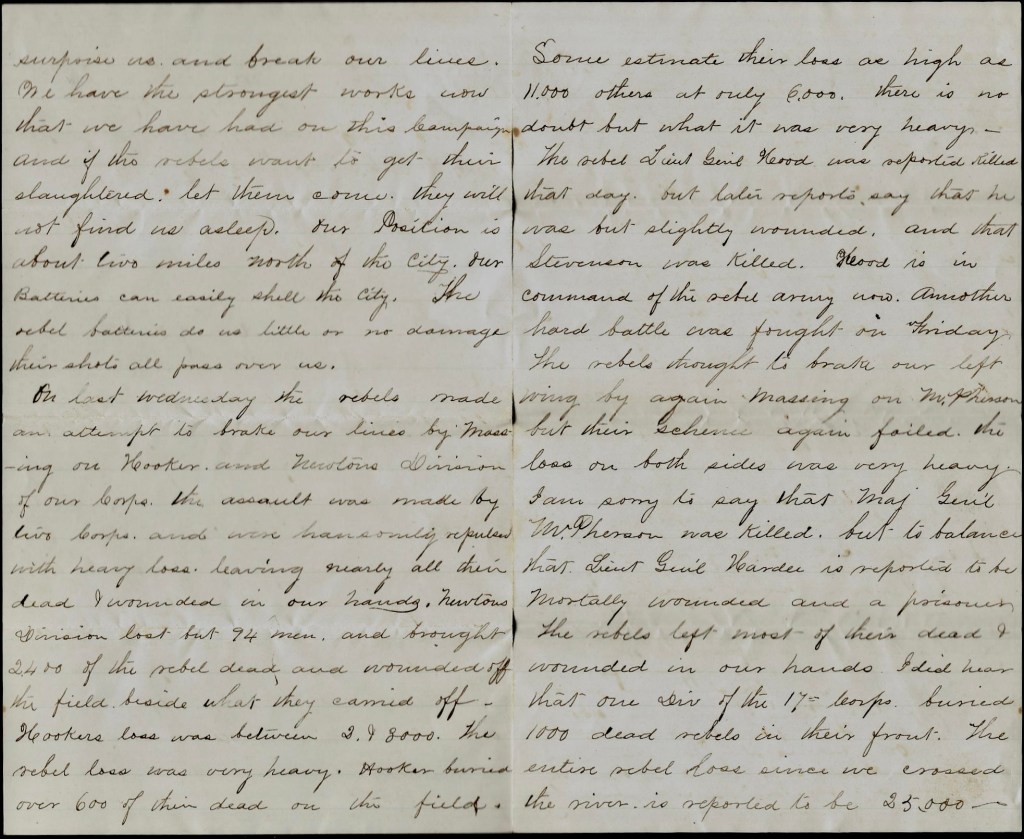 surprise us and break our lines.
We have the strongest works now
that we have had on this Campaign
and if the rebels want to get their
slaughtered. let them come. they will
not find us asleep. our Position is
about two miles north of the City. our
Batteries can easily shell the City. The
rebel batteries do us little or no damage
their shots all pass over us.
On last wednesday the rebels made
an attempt to brake our lines by Mass-
-ing on Hooker. and Newtons Division
of our Corps. the assault was made by
two Corps. and were hansomly repulsed
with heavy loss. leaving nearly all their
dead & wounded in our hands. Newtons
Division lost but 94 men. and brought
2400 of the rebel dead and wounded off
the field. beside what they carried off -
Hookers loss was between 2. & 3000. The
rebel loss was very heavy. Hooker buried
over 600 of their dead on the field.
Some estimate their loss as high as
11.000 others at only 6,000. there is no
doubt but what it was very heavy. -
The rebel Lieut Genl Hood was reported Killed
that day. but later reports say that he
was but slightly wounded. and that
Stevenson was Killed. Hood is in
command of the rebel army now. Annother
hard battle was fought on Friday
The rebels thought to brake our left
wing by again Massing on McPherson
but their scheme again failed. the
loss on both sides was very heavy.
I am sorry to say that Maj Gen'l
McPherson was Killed. but to balance
that. Lieut Gen'l Hardee is reported to be
Mortally wounded and a prisoner
The rebels left most of their dead &
wounded in our hands I did hear
that one Div of the 17= Corps. buried
1000 dead rebels in their front. The
entire rebel loss since we crossed
the river. is reported to be 25,000 -